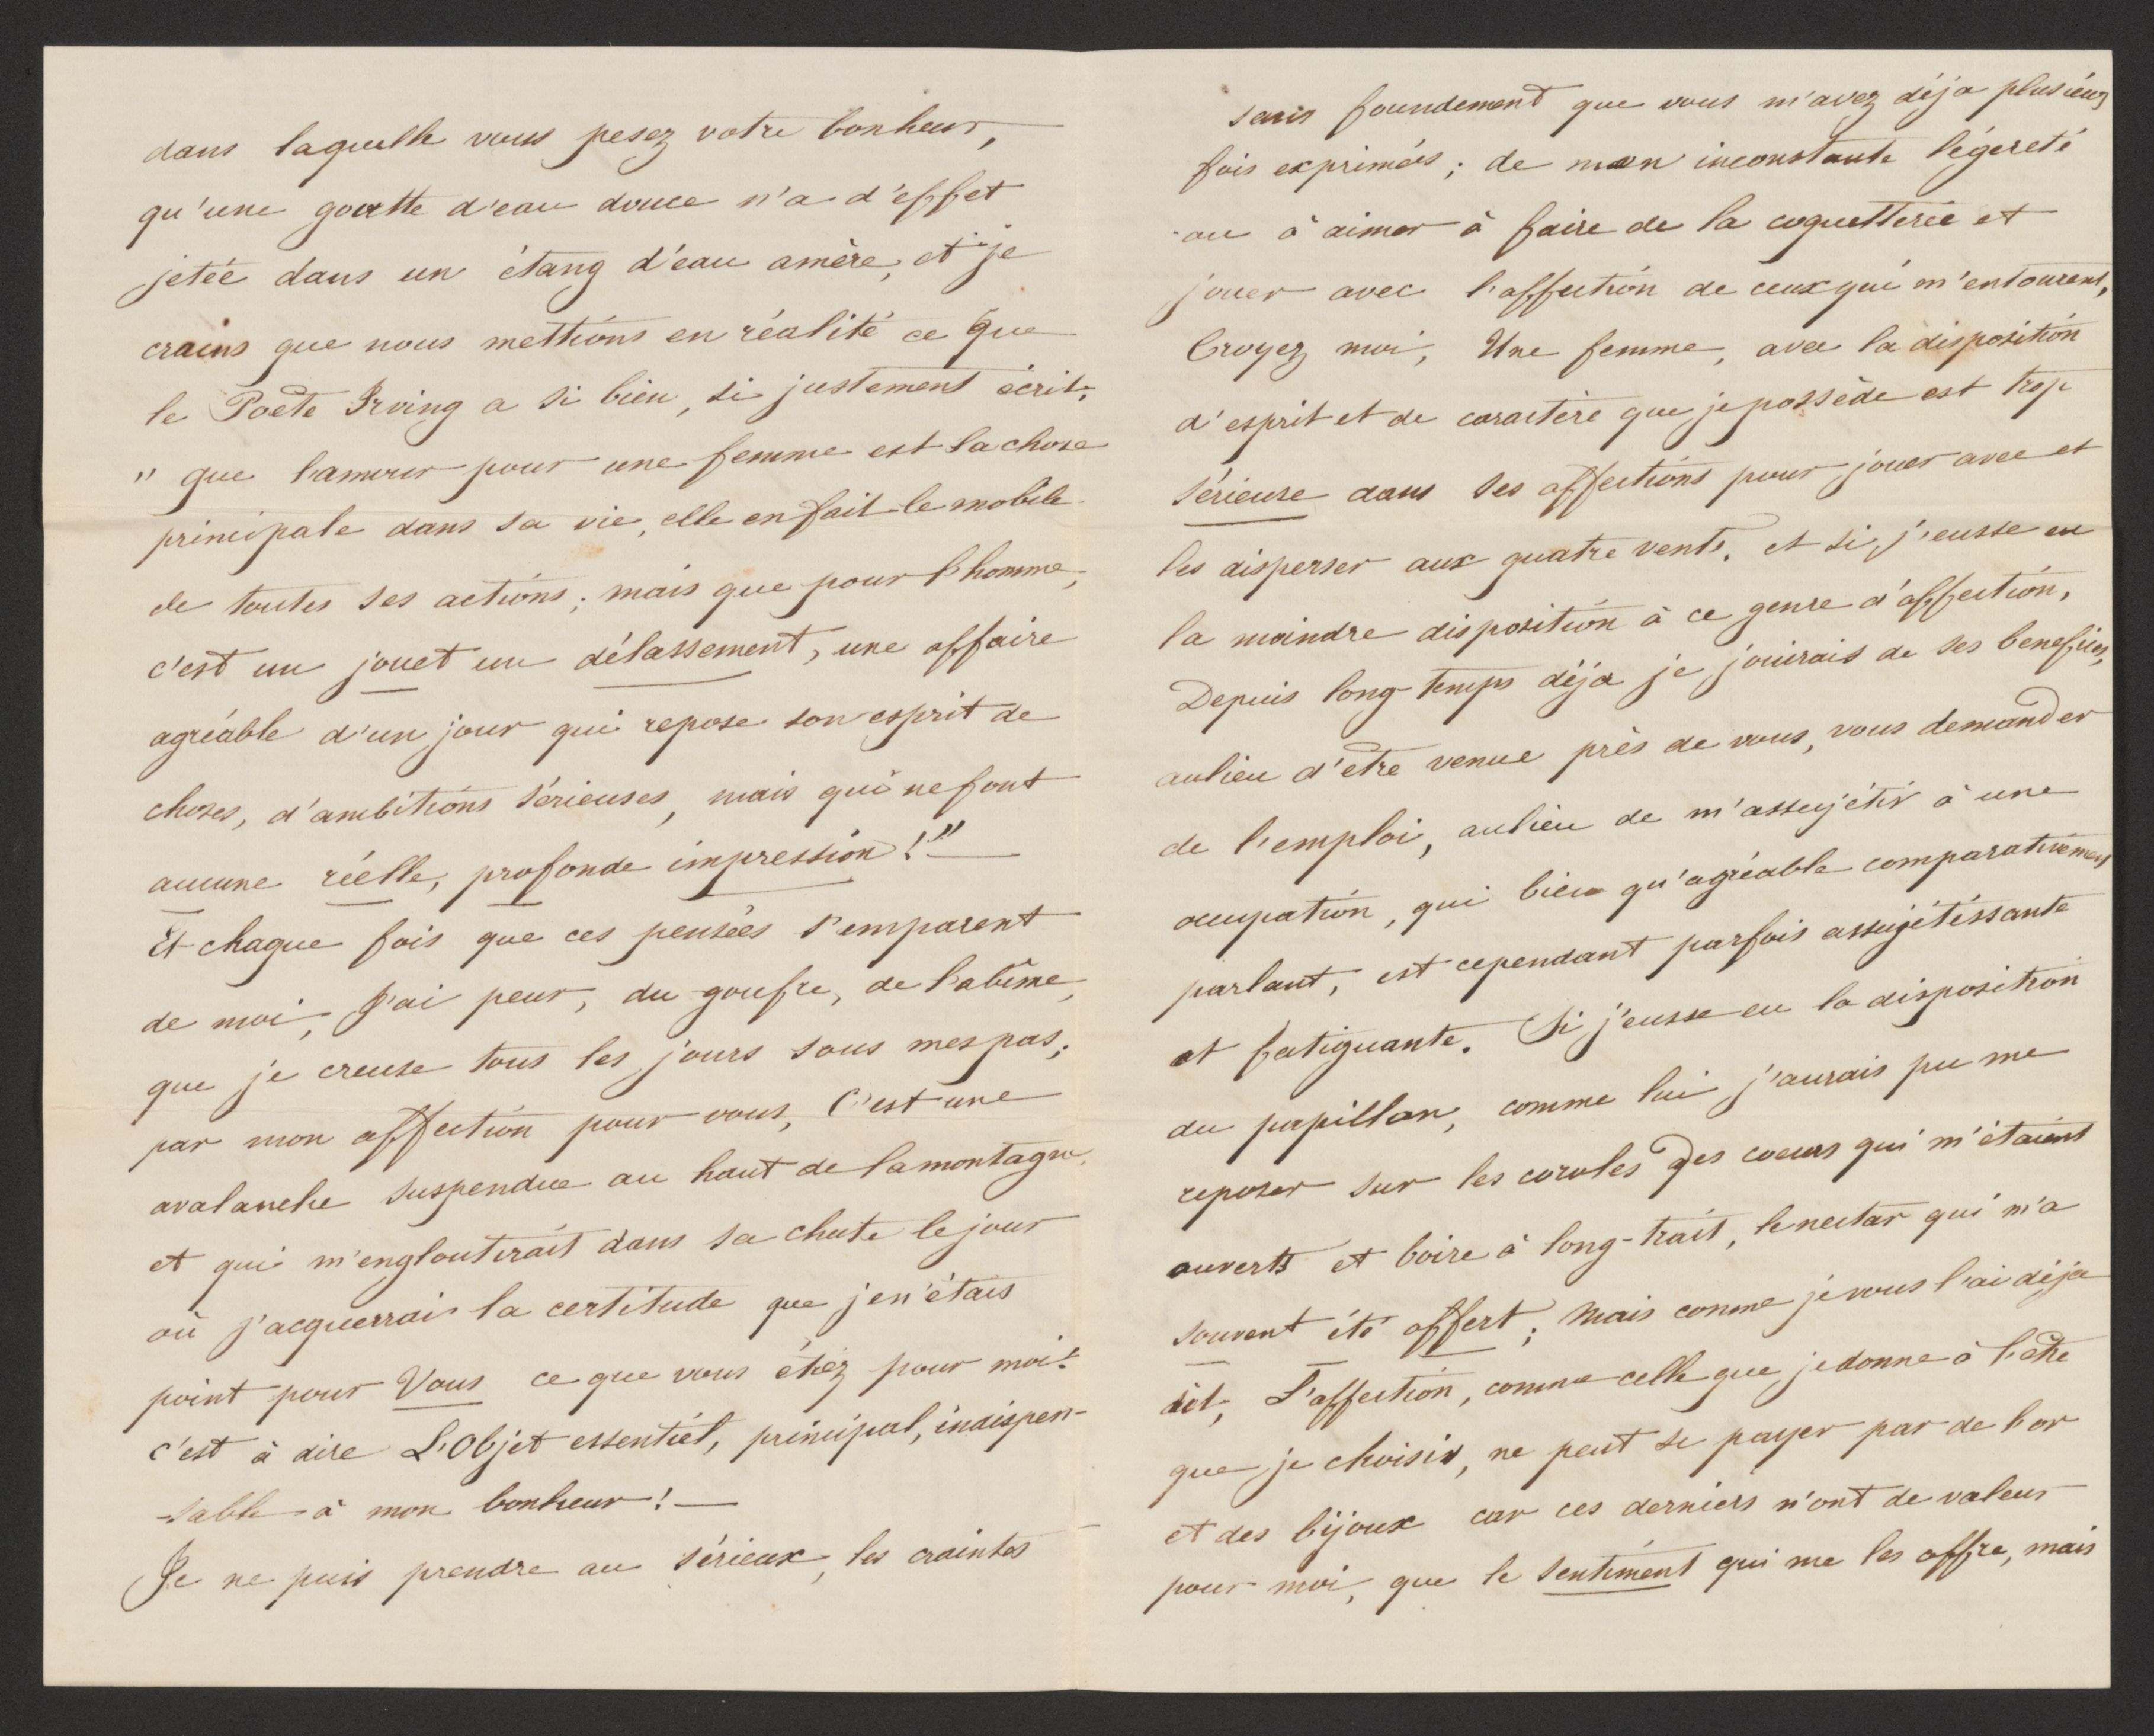 dans laquelle vous pesez votre bonheur,
qu'une goutte d'eau douce n'a d'effet
jetée dans un étang d'eau amère, et je
crains que nous mettions en réalité ce que
le Poète Irving a si bien, si justement écrit,
" que l'amour pour une femme est la chose
principale dans sa vie, elle en fait le mobile
de toutes ses actions; mais que pour l'homme,
c'est un jouet un délassement, une affaire
agréable d'un jour qui repose son esprit de
choses, d'ambitions sérieuses, mais qui ne font
aucune réelle, profonde impression!" —
Et chaque fois que ces pensées s'emparent
de moi, J'ai peur, du goufre, de l'abîme,
que je creuse tous les jours sous mes pas;
par mon affection pour vous, C'est une
avalanche suspendue au haut de la montagne,
et qui m'engloutirait dans sa chute le jour
où j'acquerrai la certitude que je n'étais
point pour Vous ce que vous étiez pour moi!
c'est à dire L'Objet essentiel, principal, indispen-
-sable à mon bonheur! —
Je ne puis prendre au sérieux, les craintes
sans foundement que vous m'avez déja plusieurs
fois exprimées; de mon inconstante légereté
ou à aimer à faire de la coquetterie et
jouer avec l'affection de ceux qui m'entourent,
Croyez moi, Une femme, avec la disposition
d'esprit et de caractère que je possède est trop
sérieuse dans ses affections pour jouer avec et
les disperser aux quatre vents, et si j'eusse eu
la moindre disposition à ce genre d'affection,
Depuis long-temps déja je jouirais de ses benefices,
aulieu d'être venue près de vous, vous demander
de l'emploi, aulieu de m'assujétir à une
occupation, qui bien qu'agréable comparativement
parlant, est cependant parfois assujétissante
et fatiguante. Si j'eusse eu la disposition
du papillon, comme lui j'aurais pu me
reposer sur les coroles des coeurs qui m'étaient
ouverts et boire à long-trait, le nectar qui m'a
souvent été offert; mais comme je vous l'ai déja
dit, L'affection, comme celle que je donne à l'être
que je choisis, ne peut se payer par de l'or
et des bijoux car ces derniers n'ont de valeur
pour moi, que le sentiment qui me les offre, mais